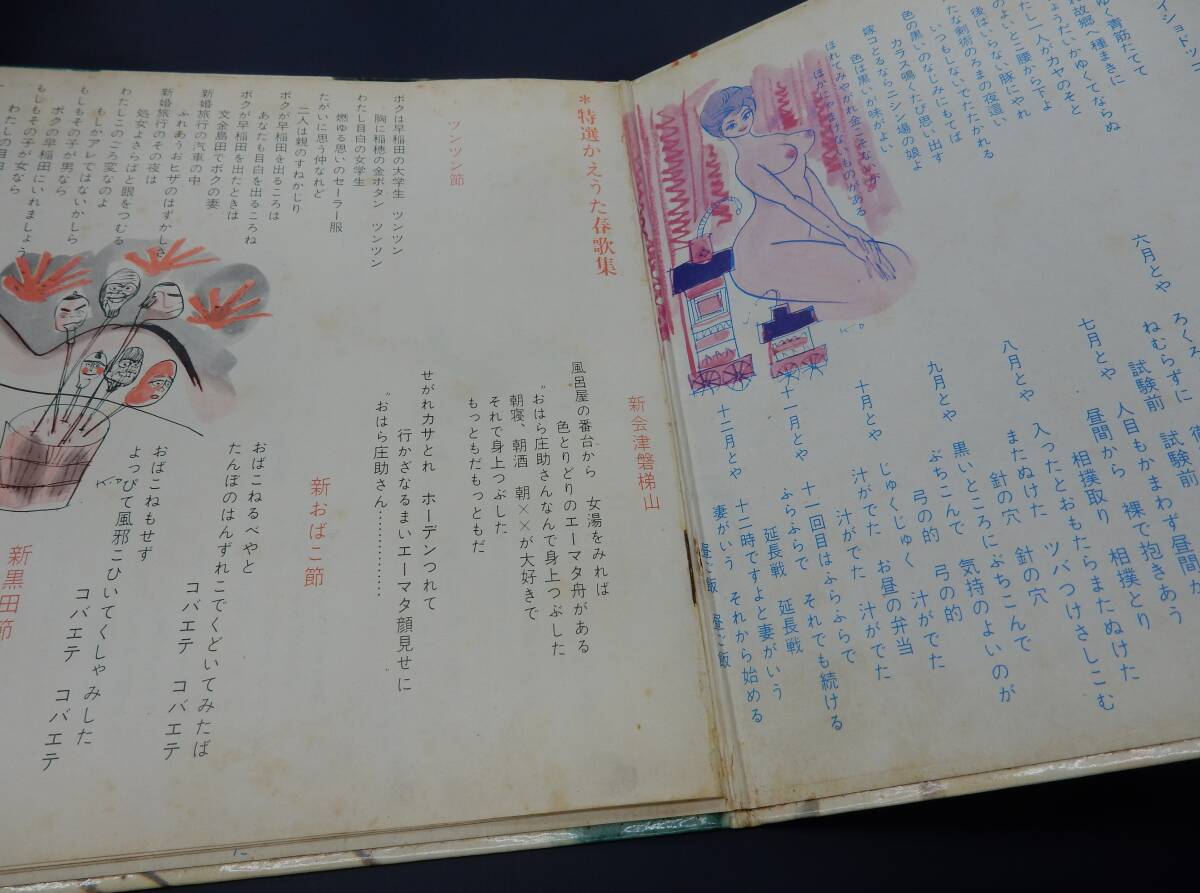 イショドッコ
ゆく青筋だてて
故郷へ種まきに
ょうだいがゆくてならぬ
たし一人がカヤのそと
のよいとこ腰から下よ
後はいらない豚にやれ
たな剣術のろまの夜這い
いつもしないでたたかれる
色の黒いのなじみにもてば
カラス鳴くたび思い出す
嫁コとるならニシン場の娘よ
色は黒いが味がよい
ほれてみやがれ金こそないが
ほかにゃまけないものがある
六月とや
ねむらずに 試験前 試験前
七月とや 昼間から 裸で抱きあう
人目もかまわず昼間か
相撲取り 相撲とり
八月とや 入ったとおもたらまたぬけた
またぬけた ツバつけさしこむ
針の穴 針の穴
九月とや 黒いところにぶちこんで
ぶちこんで 気持のよいのが
弓の的 弓の的
十月とや じゅくじゅく 汁がでた
汁がでた お昼の弁当
汁がでた 汁がでた
十一月とや 十一回目はふらふらで
ふらふらで それでも続ける
延長戦 延長戦
十二月とや 十二時ですよと妻がいう
妻がいう それから始める
昼ご飯 昼ご飯
*特選かえうた春歌集
ツンツン節
ボクは早稲田の大学生 ツンツン
胸に稲穂の金ボタン ツンツン
わたし目白の女学生
燃ゆる思いのセーラー服
たがいに思う仲なれど
二人は親のすねかじり
ボクが早稲田を出るころは
あなたも目白を出るころね
ボクが早稲田を出たときは
文金島田でボクの妻
新婚旅行の汽車の中
ふれあうおヒザのはずかしさ
新婚旅行のその夜は
処女よさらばと眼をつむる
わたしこのごろ変なのよ
もしかアレではないかしら
もしもその子が男なら
ボクの早稲田にいれましょう
もしもその子が女なら
わたしの目白
新会津磐梯山
風呂屋の番台から 女湯をみれば
色とりどりのエーマタ舟がある
〝おはら庄助さんなんで身上つぶした
朝寝、朝酒 朝××が大好きで
それで身上つぶした
もっともだもっともだ
せがれカサとれ ホーデンつれて
行かざなるまいエーマタ顔見せに
〝おはら庄助さん………………
新おばこ節
おばこねるべやと
たんぼのはんずれこでくどいてみたば
コバエテ コバエテ
おばこねもせず
よっぴて風邪こひいてくしゃみした
コバエテ コバエテ
新黒田節